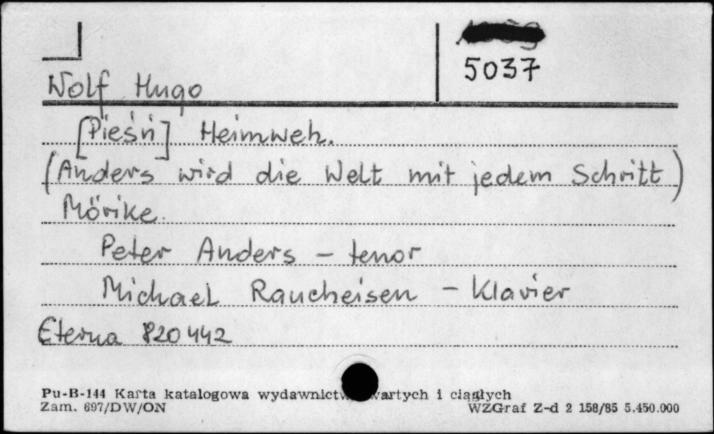 5037
Wolf Hugo
[Pieśń] Heimweh.
(Anders wird die Welt mit jedem Schritt)
Mörike.
Peter Anders – tenor
Michael Raucheisen – Klavier
Eterna 820442
Pu-B-144 Karta katalogowa wydawnictw zwartych i ciągłych
Zam. 697/DW/ON WZGraf Z-d 2 158/85 5.450.000